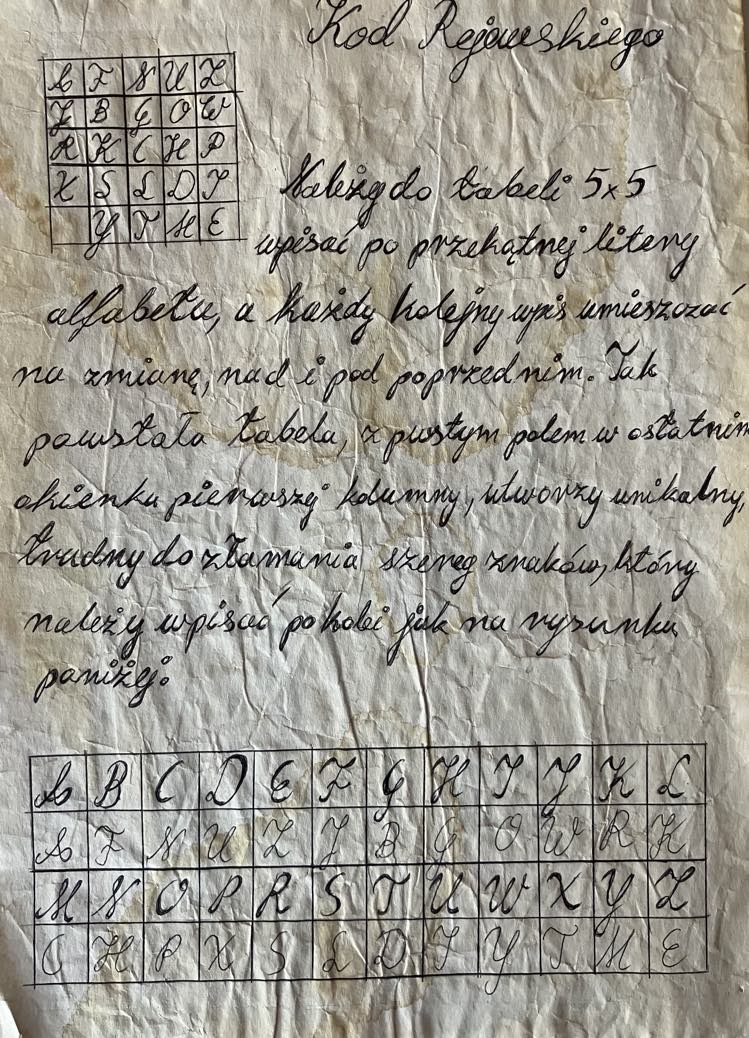 Kod Rejewskiego
A F N U Z
J B G O W
R K C H P
X S L D I
Y T M E
Należy do tabeli 5x5
wpisać po przekątnej litery
alfabetu, a każdy kolejny wpis umieszczać
na zmianę, nad i pod poprzednim. Tak
powstała tabela, z pustym polem w ostatnim
okienku pierwszej kolumny, utworzy unikalny,
trudny do złamania szereg znaków, który
należy wpisać po kolei jak na rysunku
poniżej:
A B C D E F G H I J K L
A F N U Z J B G O W R K
M N O P R S T U W X Y Z
C H P X S L D I Y T M E